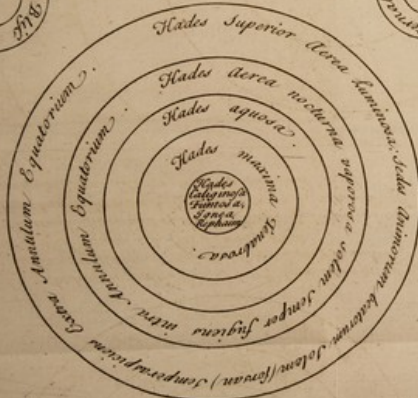 Hades Superior Aerea luminosa: Sedes Animorum beatorum Solem (forsan) semper aspiciens Extra Annulum Equatorium.
Hades Aerea nocturna vaporosa Solem Semper fugiens intra Annulum Equatorium.
Hades aquosa.
Hades maxima Tenabrosa.
Hades
Caliginosa
Fumosa,
Ignea
Rephaim